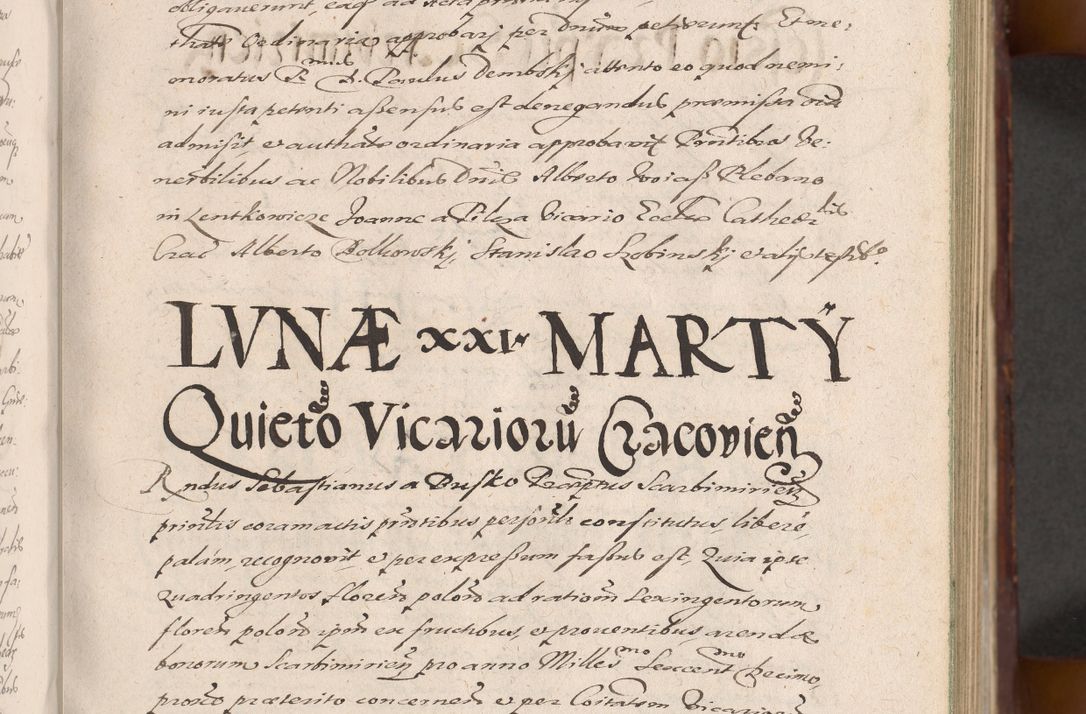 obligaverunt, easq ad Acta
thate Ordinaria approbarj per Dnum petierunt. Et me:
moratus R. mus D. Paulus Dembskj, attento eo quod nemi:
ni iusta petenti assensus est denegandus, præmissa oia
admisit, et authate ordinaria approbavit. Pntibus Ve:
nerbilibus ac Nobilibus Dnis Alberto Plebano
in Lentkowicze Joanne a Pilza Vicario Eccliæ Cathedrlis
Crac Alberto Dolkowskj, Stanislao Lobinskj et alijs testib9.
LVNÆ XXI MARTŸ
Quieto Vicarioru Cracovien
Rndus Sebastianus a Busko Præceptus Scarbimirien
printis coram actis pntibus personlr constitutus, libere,
palam, recognovit, et per expressum fassus est, Quia ipse
Quadringentos floren polon ad ration Sexingentorum
floren polon ipm ex fructibus, et proventibus arendæ
bonorum Scarbimirien pro anno Milles mo Sexcent mo Decimo,
proxo præterito concernen et per Coitatem Vicariorum